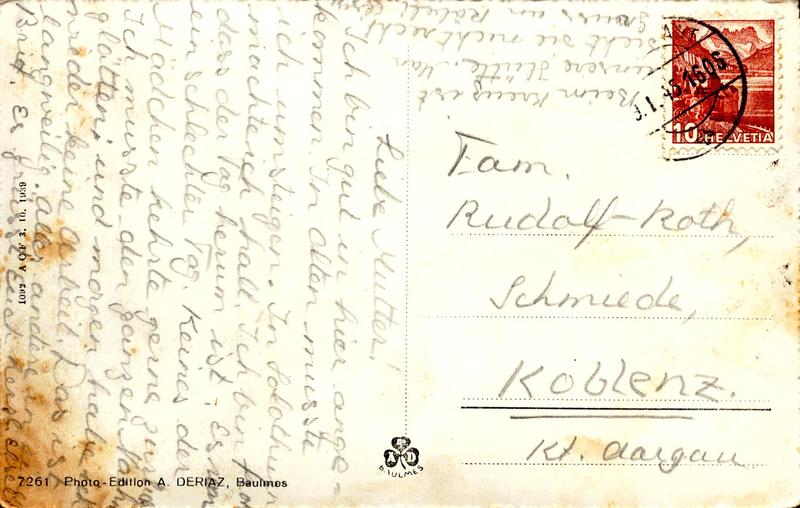 Beim Kreuz ist
unsere Hütte. Man
sieht sie nicht recht
Liebe Mutter!
Ich bin gut in hier ange-
kommen. In Olten musste
ich umsteigen. In Solothurn
machte ich halt. Ich bin froh
dass der Tag herum ist, es war
ein schlechter Tag. Keines der
Mädchen kehrte gerne zurück
Ich musste den ganzen Nachm
glätten, und morgen habe ich
wieder keine Arbeit. Das ist
langweilig, alles andere im
Brief. Es grüsst euch herzlich
Fam.
Rudolf-Roth,
Schmiede,
Koblenz.
Kt. Aargau
1606
10 HELVETIA
A D
BAULMES
1092 A C F 3. 10. 1939
7261 Photo-Edition A. DERIAZ, Baulmes